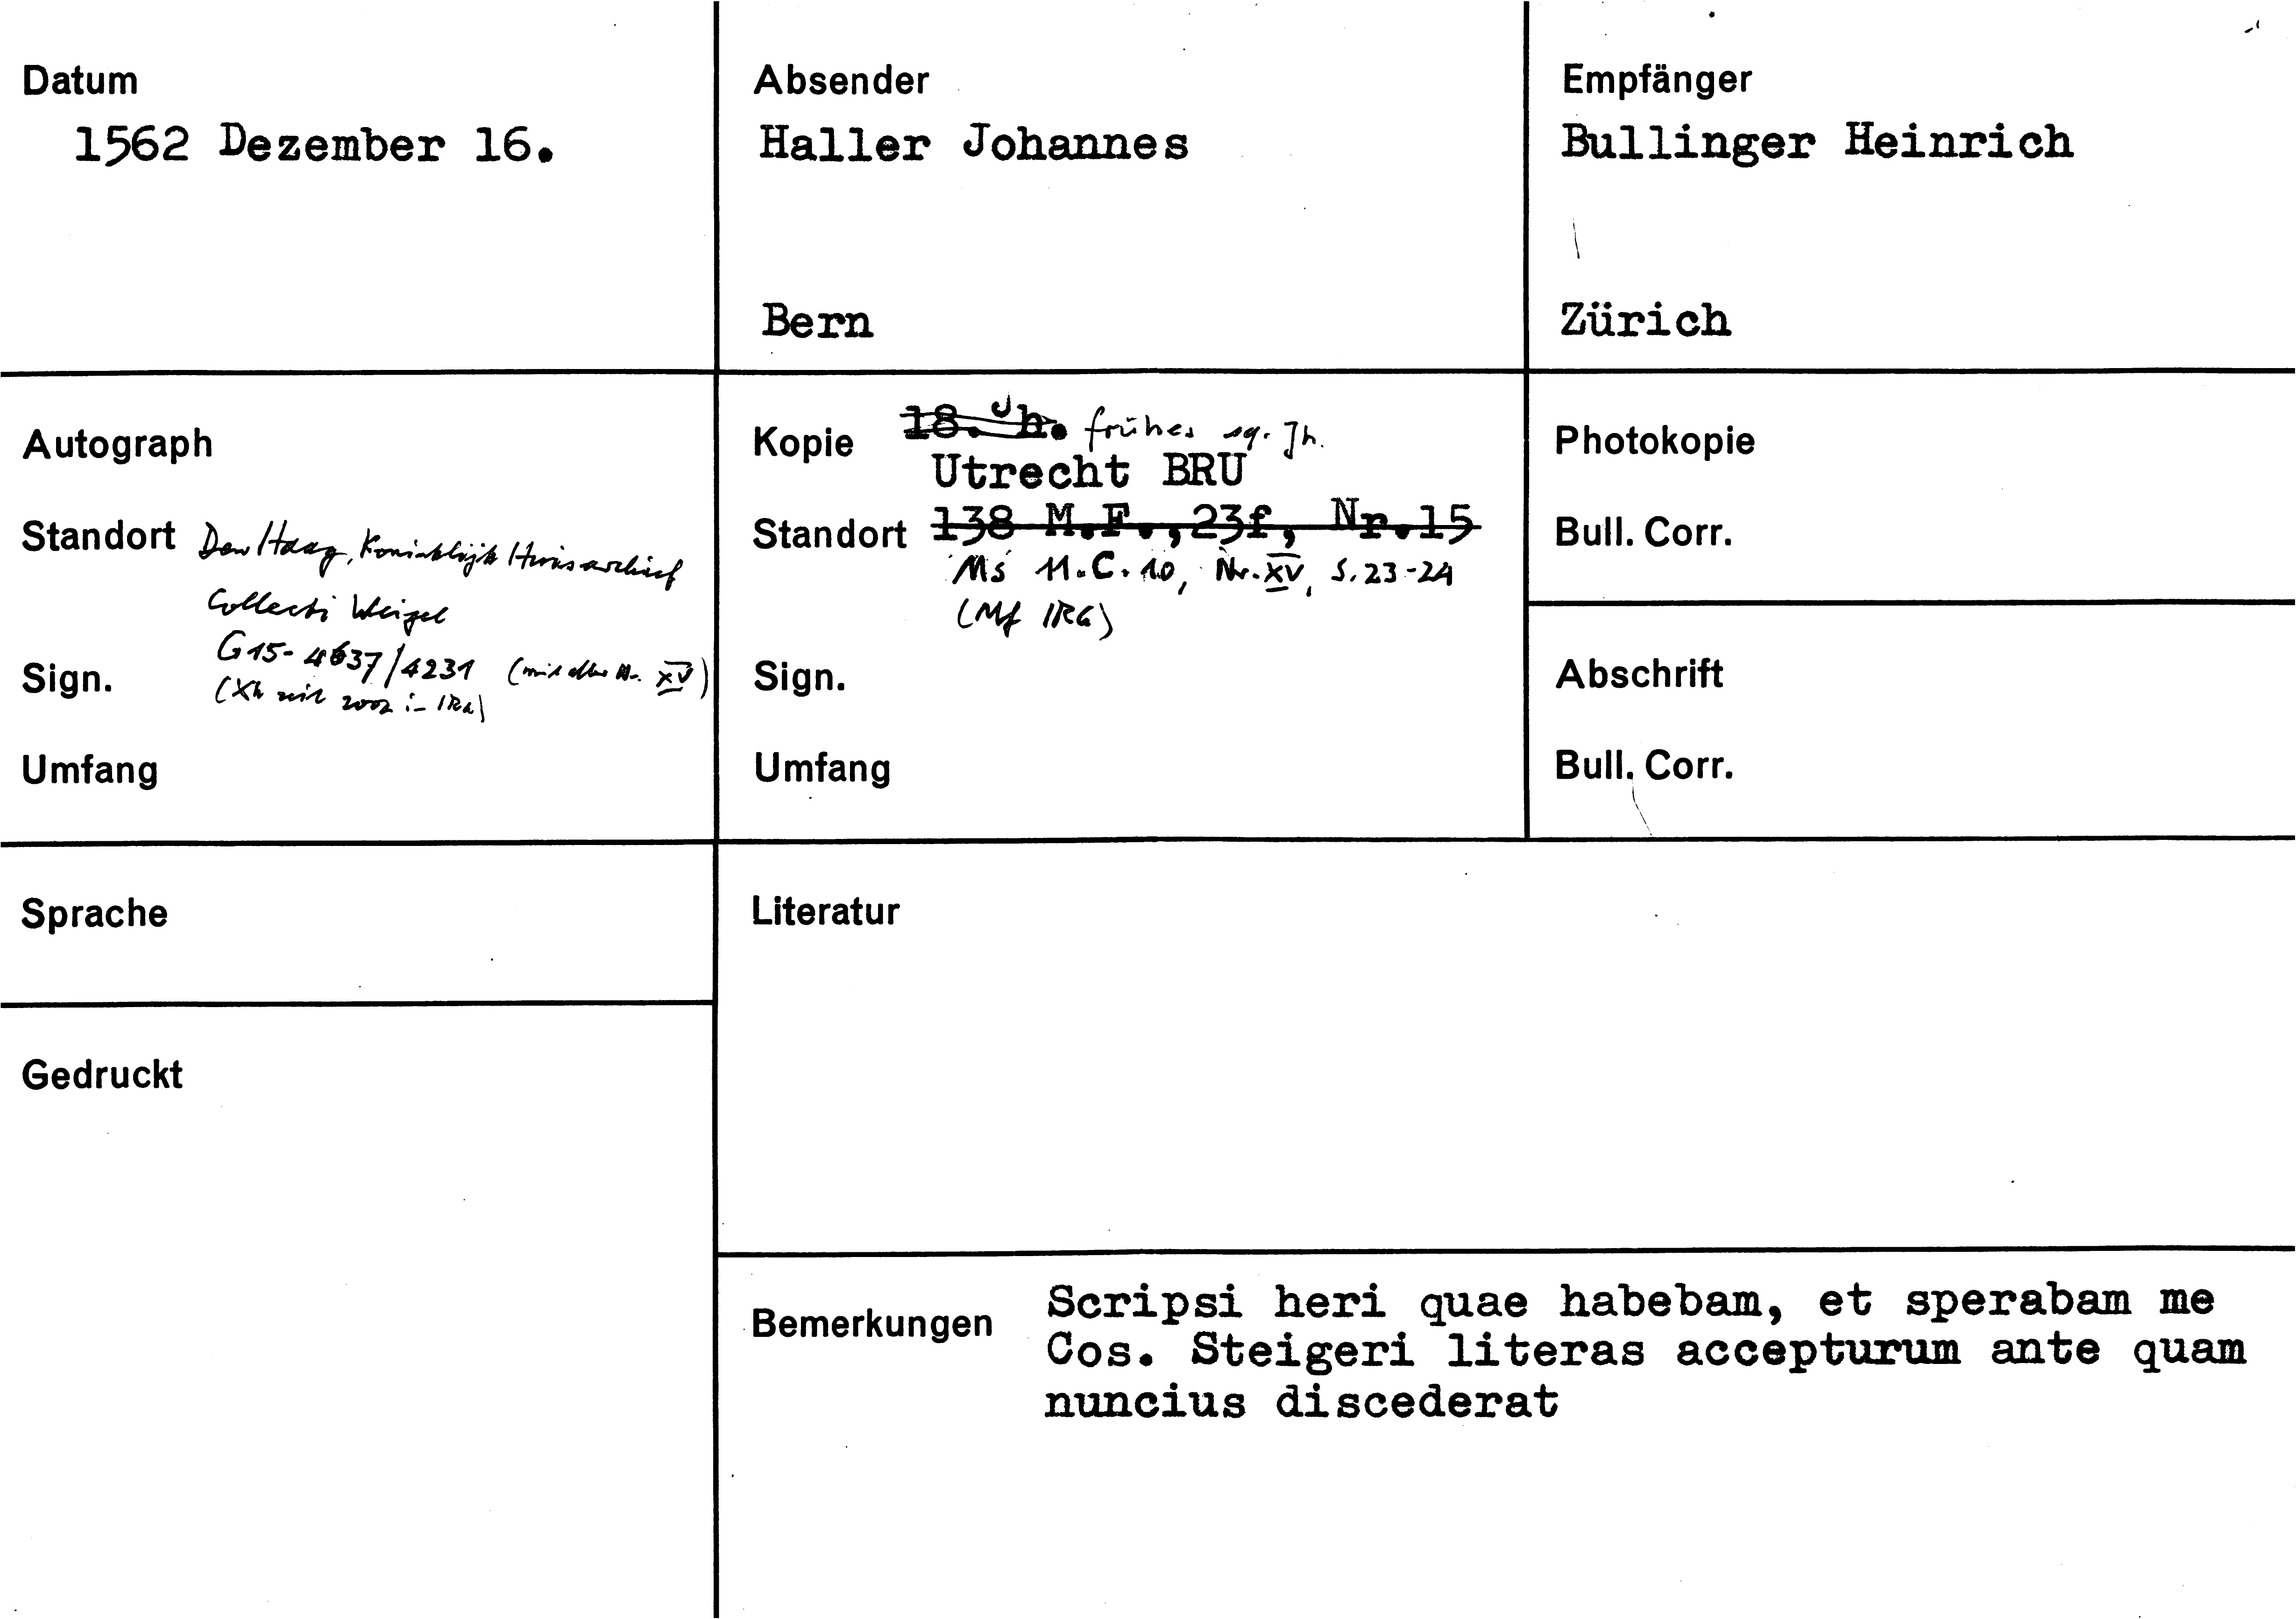 Datum
1562 Dezember 16.
Absender
Haller Johannes
Bern
Empfänger
Bullinger Heinrich
Zürich
Autograph
Standort Den Haag, Koninklijk Huisarchief
Collectie Weigel
Sign. G15-4637/4231 (mit alter Nr. XV)
(Xk seit 2002 im IRG)
Umfang
Kopie 18. Jh. frühes 19. Jh.
Utrecht BRU
Standort 138 M.F.,23f, Nr.15
Ms 11.C.10, Nr. XV, S. 23-24
(Mf IRG)
Sign.
Umfang
Photokopie
Bull. Corr.
Abschrift
Bull. Corr.
Sprache
Gedruckt
Literatur
Bemerkungen Scripsi heri quae habebam, et sperabam me
Cos. Steigeri literas accepturum ante quam
nuncius discederat